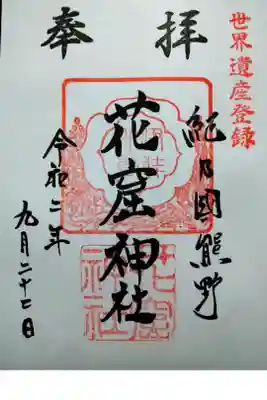 世界遺産登録
奉拝
紀乃國熊野
花窟神社
令和二年
九月二十七日